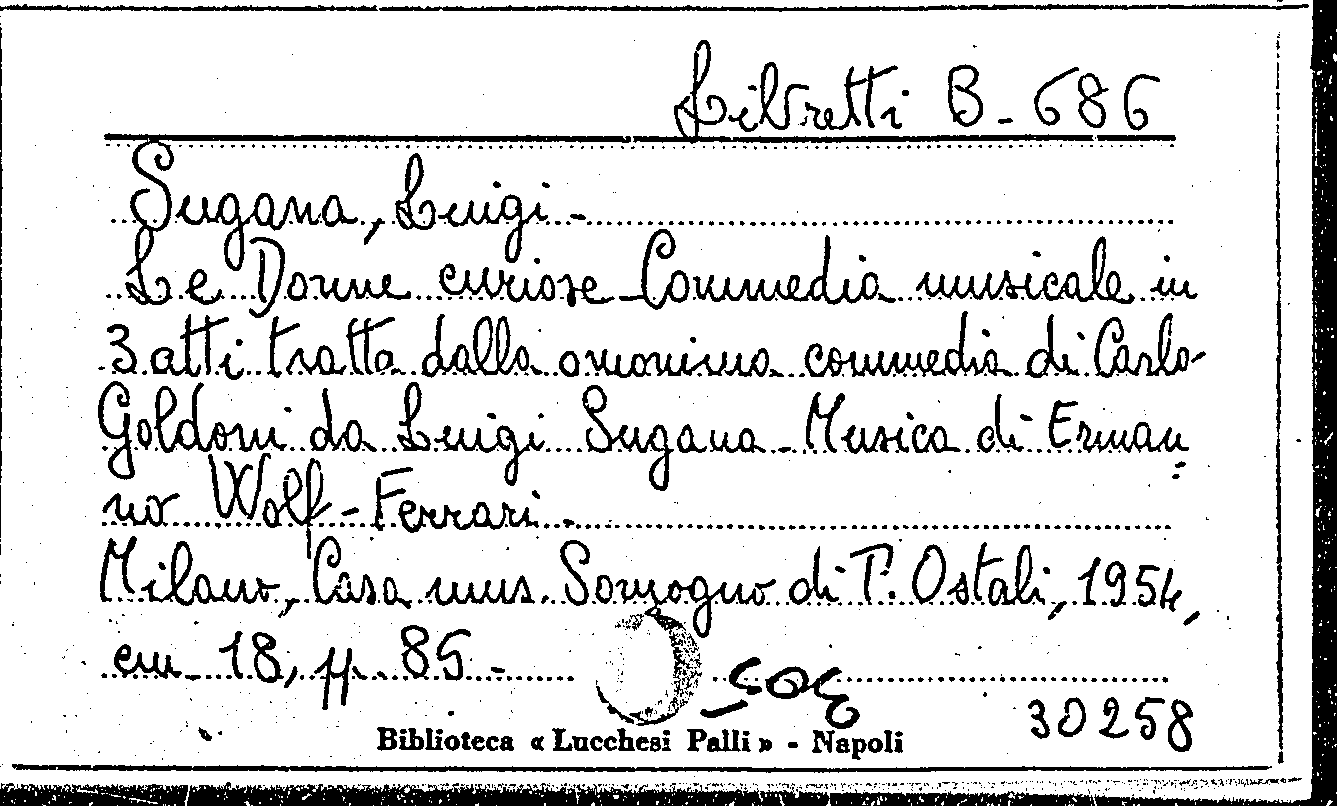 Libretti B-686
Sugana, Luigi -
Le Donne curiose - Commedia musicale in
3 atti tratta dalla omonima commedia di Carlo
Goldoni da Luigi Sugana - Musica di Erman=
no Wolf-Ferrari -
Milano, Casa mus. Sonzogno di P. Ostali, 1954,
cm 18, pp. 85 -
30258
Biblioteca « Lucchesi Palli » - Napoli